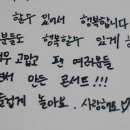 할수 있어서 행복합니다
분들도 행복할수 있게
고맙고 팬 여러분들
만든 콘서트!!!
놀아요. 사랑해요♡